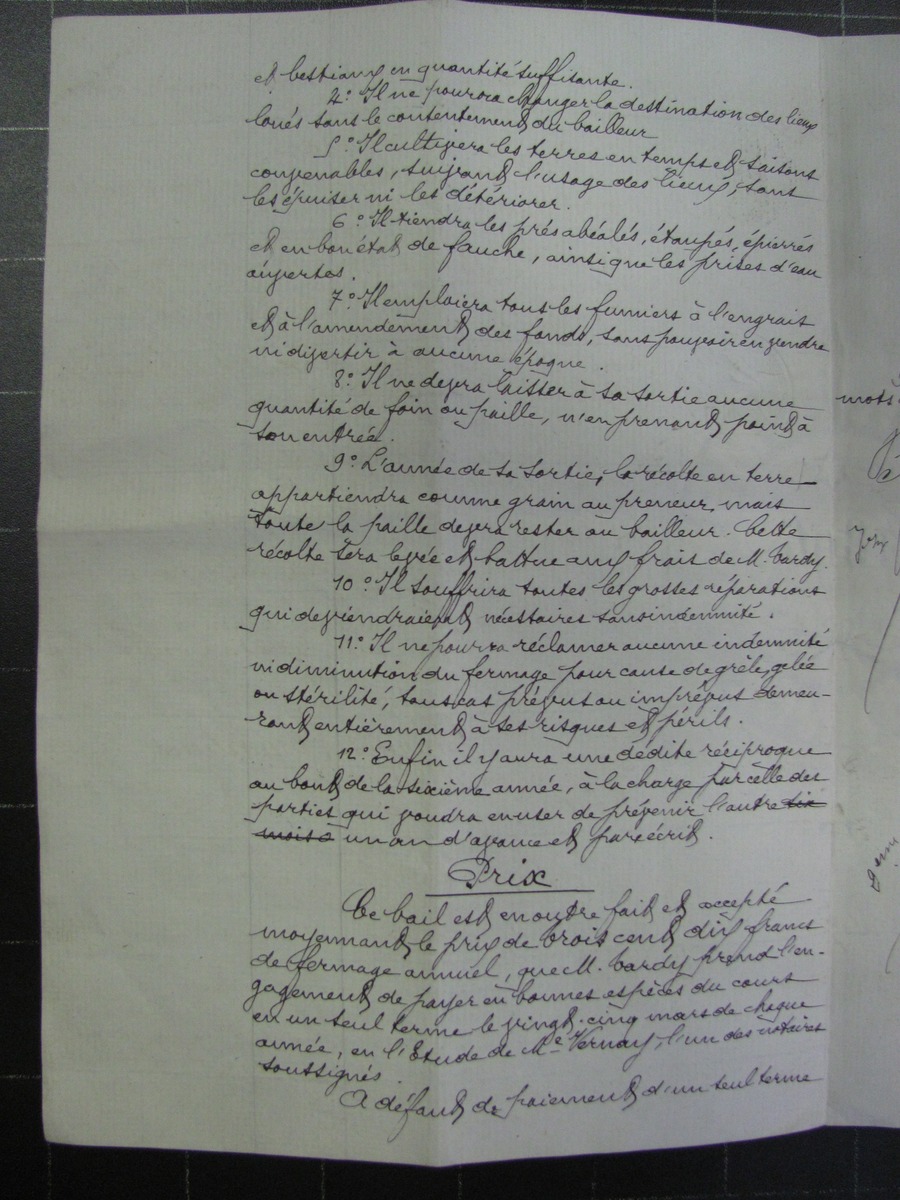 et bestiaux en quantité suffisante.
4° Il ne pourra changer la destination des lieux
loués sans le consentement du bailleur
5° Il cultivera les terres en temps et saisons
convenables, suivant l'usage des lieux, sans
les épuiser ni les détériorer.
6° Il tiendra les prés abéalés, étaupés, épierrés
et en bon état de fauche, ainsi que les prises d'eau
ouvertes.
7° Il emploiera tous les fumiers à l'engrais
et à l'amendement des fonds, sans pouvoir en vendre
ni divertir à aucune époque.
8° Il ne devra laisser à sa sortie aucune
quantité de foin ou paille, n'en prenant point à
son entrée.
9° L'année de sa sortie, la récolte en terre
appartiendra comme grain au preneur, mais
toute la paille devra rester au bailleur. Cette
récolte sera levée et battue aux frais de M. Tardy.
10° Il souffrira toutes les grosses réparations
qui deviendraient nécessaires sans indemnité.
11° Il ne pourra réclamer aucune indemnité
ni diminution du fermage pour cause de grêle, gelée
ou stérilité, tous cas prévus ou imprévus demeu-
rant entièrement à ses risques et périls.
12° Enfin il y aura une dédite réciproque
au bout de la sixième année, à la charge par celle des
parties qui voudra en user de prévenir l'autre six
mois a un an d'avance et par écrit.
Prix
Ce bail est en outre fait et accepté
moyennant le prix de trois cent dix francs
de fermage annuel, que M. Tardy prend l'en-
gagement de payer en bonnes espèces du cours
en un seul terme le vingt-cinq mars de chaque
année, en l'Etude de Me Vernay, l'un des notaires
soussignés.
A défaut de paiement d'un seul terme
mots